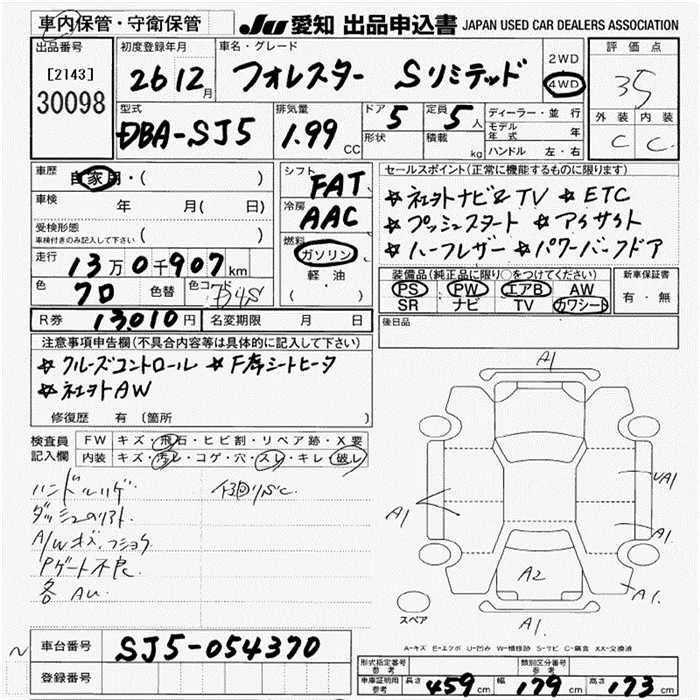 車内保管・守衛保管
JU 愛知 出品申込書 JAPAN USED CAR DEALERS ASSOCIATION
出品番号
[2143]
30098
初度登録年月
26 12月
車名・グレード
フォレスター Sリミテッド
2WD
4WD
評価点
35
外装 内装
C C
型式
DBA-SJ5
排気量
1.99 CC
ドア 5
形状
定員 5人
積載 kg
ディーラー・並行
モデル年式 年
ハンドル 左・右
車歴
自家用・( )
車検 年 月( 日)
受検形態
車検付きのみ記入して下さい ( )
走行 13万0千907km
色 クロ 色替 色コード D4S
シフト FAT
冷房 AAC
燃料
ガソリン
軽油
( )
セールスポイント(正常に機能するものに限ります)
☆社外ナビ& TV ☆ETC
☆プッシュスタート ☆アイサイト
☆ハーフレザー ☆パワーバックドア
装備品(純正品に限り○をつけてください)
PS PW エアB AW
SR ナビ TV カワシート
新車保証書
有・無
R券 13,010円 名変期限 月 日
後日品
注意事項申告欄(不具合内容等は具体的に記入して下さい)
☆クルーズコントロール ☆F席シートヒータ
☆社外AW
修復歴 有 (箇所 )
検査員記入欄
FW キズ・飛石・ヒビ割・リペア跡・X要
内装 キズ・汚レ・コゲ・穴・スレ・キレ・破レ
ハンドルハゲ
ダッシュのリフト
A/Wキズ、フショク
Pゲート不良
各 AU.
A1
A1
UA1
A1
A1.
A2
A1.
スペア
A-キズ E-エクボ U-凹み W-補修跡 S-サビ C-腐食 XX-交換済
車台番号 SJ5-054370
登録番号
形式指定番号 参考
類別区分番号 参考
車庫証明用 参考 長さ 459cm 幅 179cm 高さ 173cm